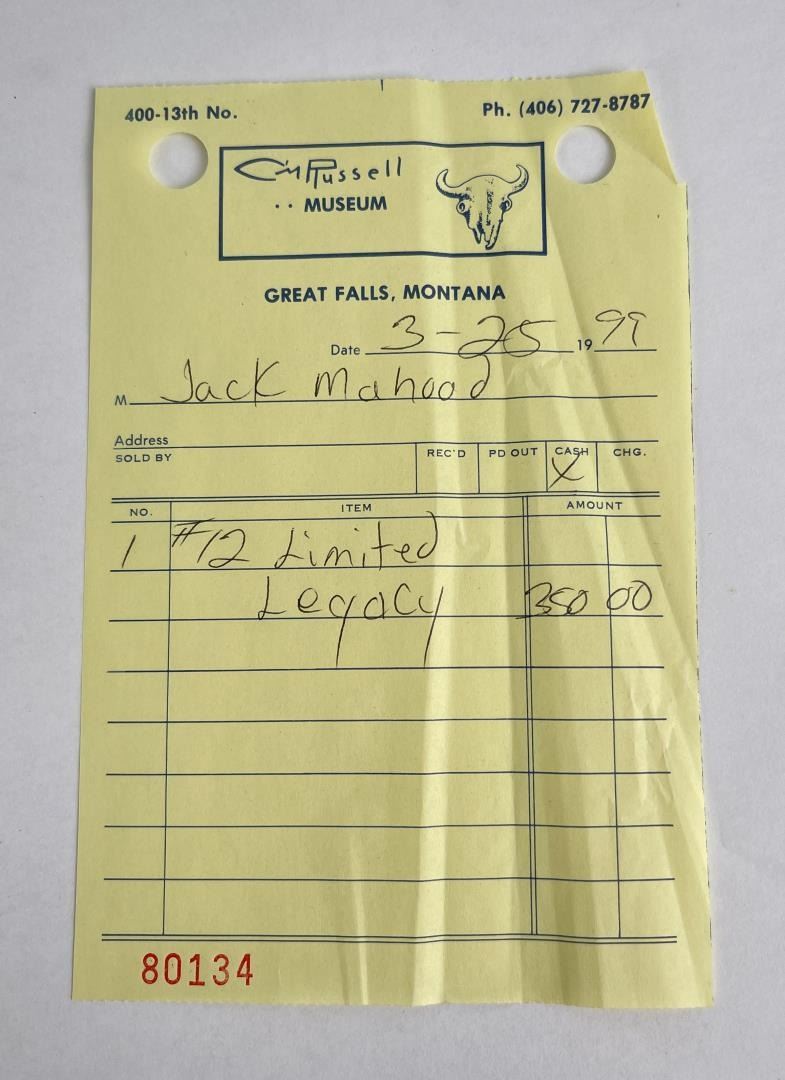 400-13th No. Ph. (406) 727-8787
CM Russell
MUSEUM
GREAT FALLS, MONTANA
Date 3-25 19 99
M Jack Mahood
Address
SOLD BY REC'D PD OUT CASH CHG.
X
NO. ITEM AMOUNT
1 #12 Limited
Legacy 350 00
80134